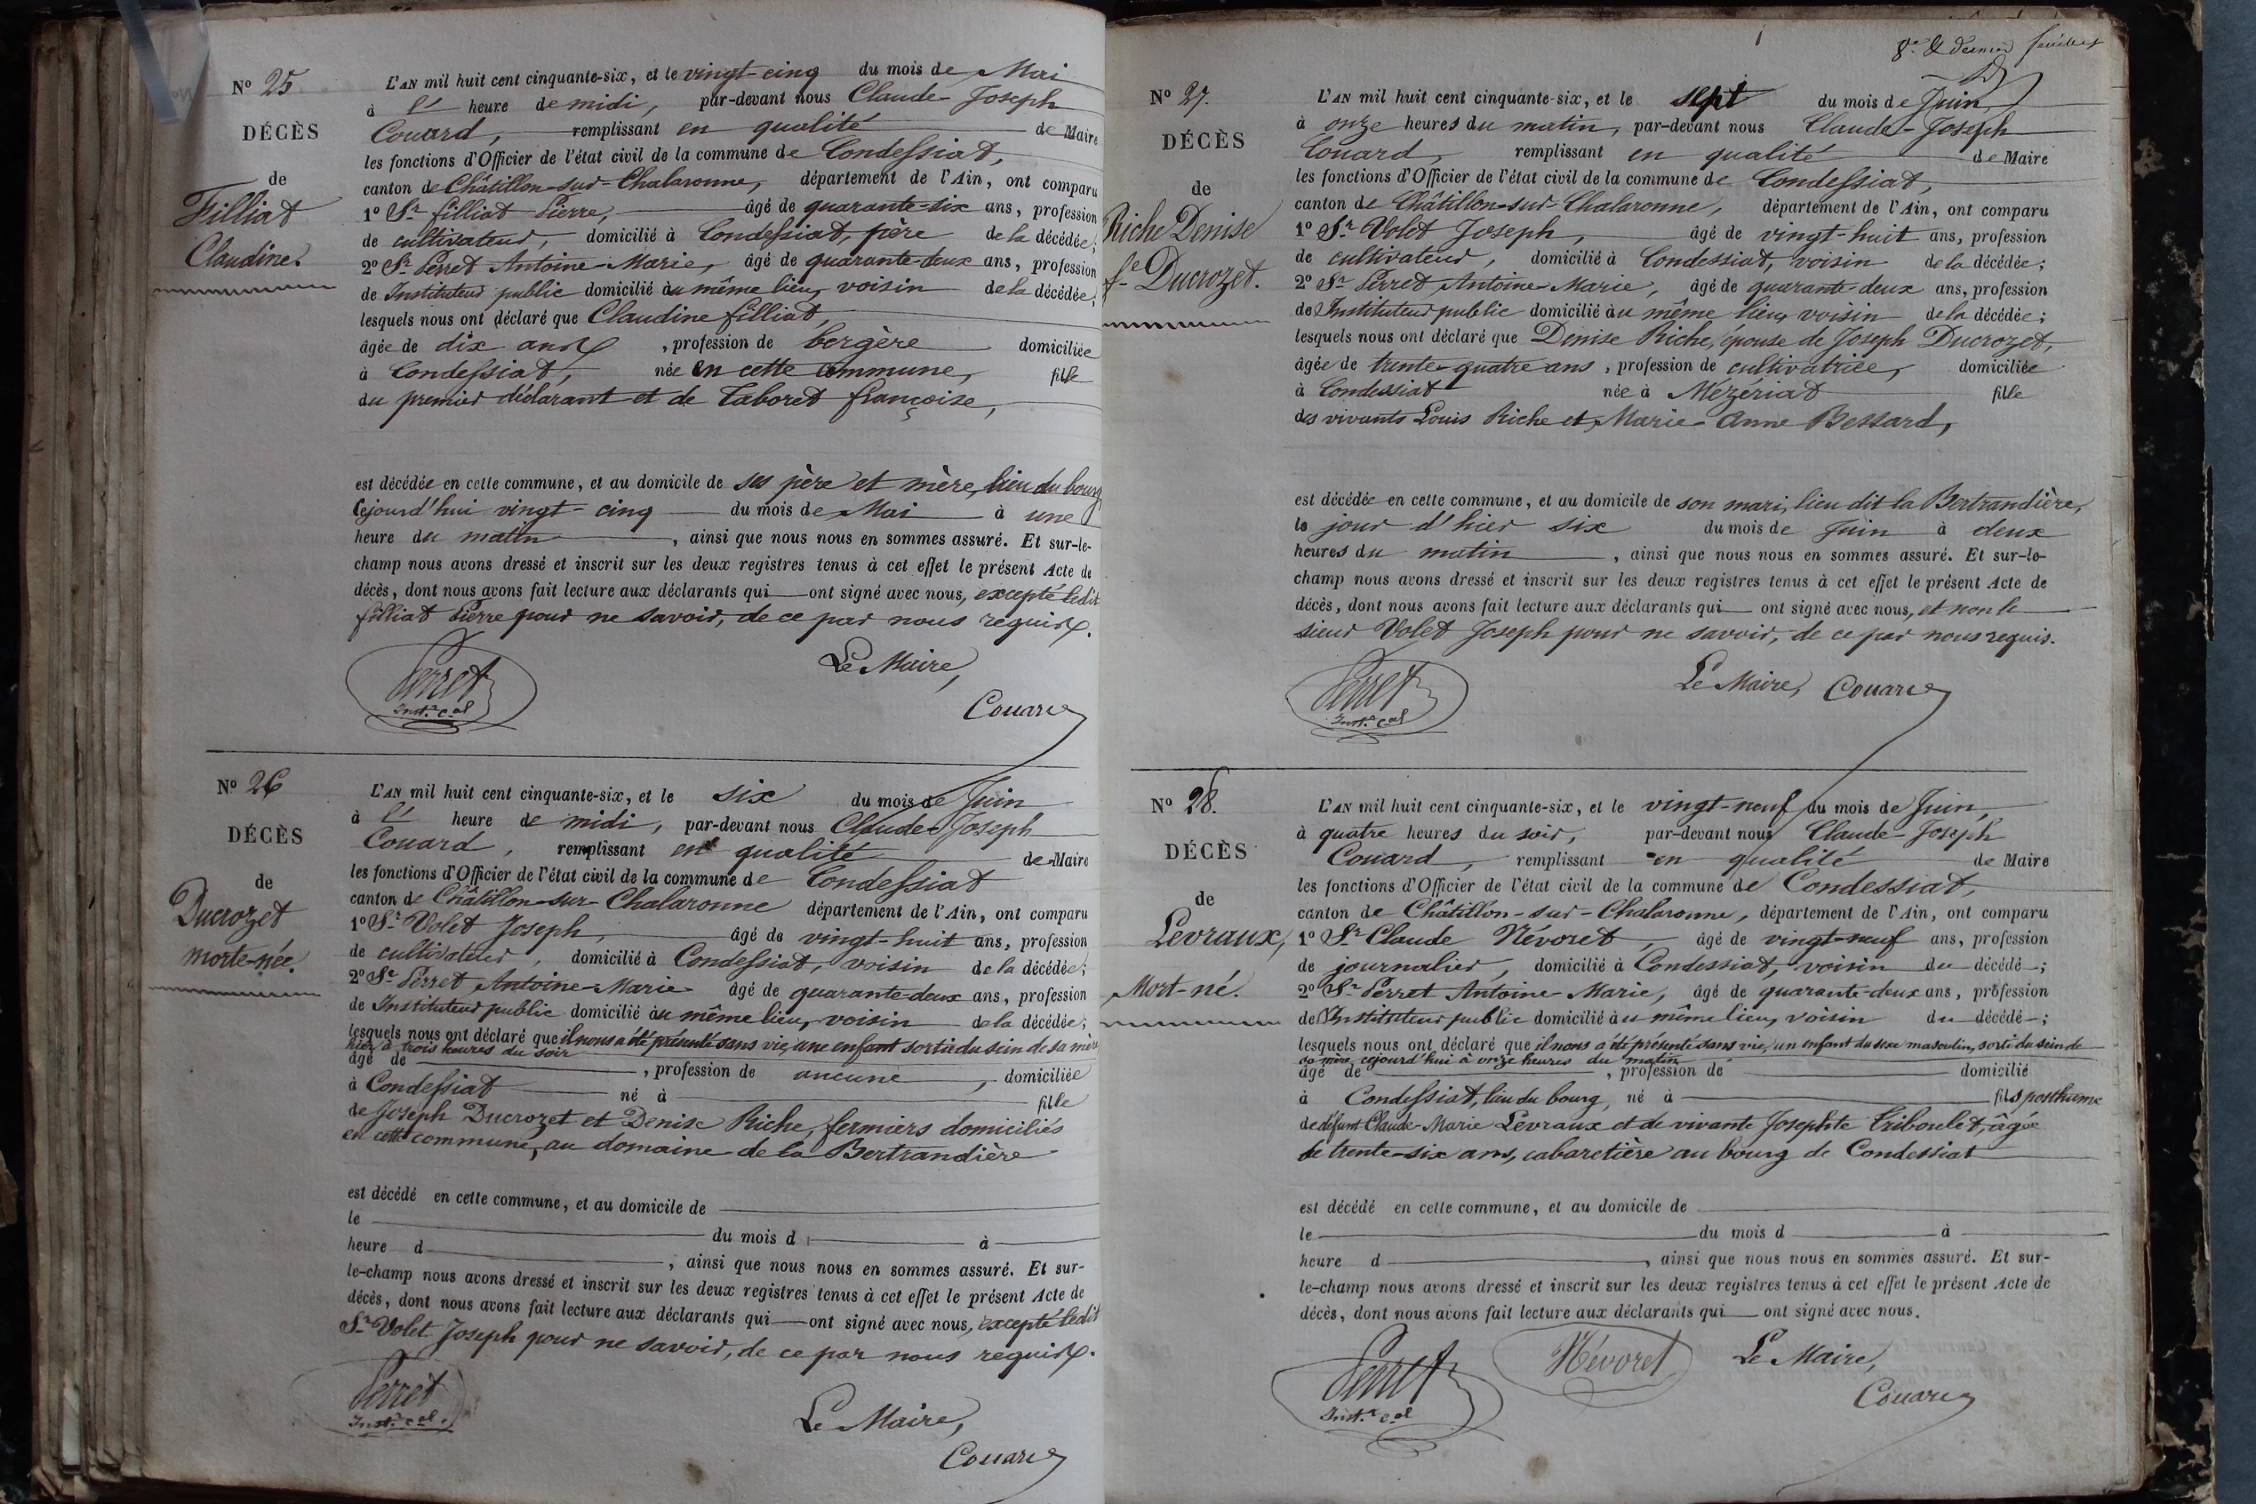 Nº 25
DÉCÈS
de
Filliat
Claudine.
L'AN mil huit cent cinquante-six, et le vingt-cinq du mois de Mai
à l' heure de midi, par-devant nous Claude-Joseph
Couard, remplissant en qualité de Maire
les fonctions d'Officier de l'état civil de la commune de Condessiat,
canton de Châtillon-sur-Chalaronne, département de l'Ain, ont comparu
1º Sr. filliat Pierre, âgé de quarante-six ans, profession
de cultivateur, domicilié à Condessiat, père de la décédée;
2º Sr. Perret Antoine-Marie, âgé de quarante-deux ans, profession
de Instituteur public domicilié au même lieu, voisin de la décédée;
lesquels nous ont déclaré que Claudine filliat,
âgée de dix ans, profession de bergère domiciliée
à Condessiat, née en cette commune, fille
du premier déclarant et de Taboret françoise,
est décédée en cette commune, et au domicile de ses père et mère, lieu du bourg
cejourd'hui vingt-cinq du mois de Mai à une
heure du matin, ainsi que nous nous en sommes assuré. Et sur-le-
champ nous avons dressé et inscrit sur les deux registres tenus à cet effet le présent Acte de
décès, dont nous avons fait lecture aux déclarants qui ont signé avec nous, excepté ledit
filliat Pierre pour ne savoir, de ce par nous requis.
Perret
Inst.r c.al
Le Maire,
Couard
Nº 26
DÉCÈS
de
Ducrozet
morte-née.
L'AN mil huit cent cinquante-six, et le six du mois de Juin
à l' heure de midi, par-devant nous Claude-Joseph
Couard, remplissant en qualité de Maire
les fonctions d'Officier de l'état civil de la commune de Condessiat
canton de Châtillon-sur-Chalaronne département de l'Ain, ont comparu
1º Sr. Volet Joseph, âgé de vingt-huit ans, profession
de cultivateur, domicilié à Condessiat, voisin de la décédée;
2º Sr. Perret Antoine-Marie âgé de quarante-deux ans, profession
de Instituteur public domicilié au même lieu, voisin de la décédée;
lesquels nous ont déclaré que il nous a été présenté sans vie, une enfant sortie du sein de sa mère
hier à trois heures du soir
âgé de , profession de aucune, domiciliée
à Condessiat né à fille
de Joseph Ducrozet et Denise Riche, fermiers domiciliés
en cette commune, au domaine de la Bertrandière
est décédé en cette commune, et au domicile de
le du mois d à
heure d , ainsi que nous nous en sommes assuré. Et sur-
le-champ nous avons dressé et inscrit sur les deux registres tenus à cet effet le présent Acte de
décès, dont nous avons fait lecture aux déclarants qui ont signé avec nous, excepté ledit
Sr. Volet Joseph pour ne savoir, de ce par nous requis.
Perret
Inst.r c.al
Le Maire,
Couard
8e & dernier feuillet
Nº 27.
DÉCÈS
de
Riche Denise
fe Ducrozet.
L'AN mil huit cent cinquante-six, et le sept du mois de Juin,
à onze heures du matin, par-devant nous Claude-Joseph
Couard, remplissant en qualité de Maire
les fonctions d'Officier de l'état civil de la commune de Condessiat,
canton de Châtillon-sur-Chalaronne, département de l'Ain, ont comparu
1º Sr. Volet Joseph, âgé de vingt-huit ans, profession
de cultivateur, domicilié à Condessiat, voisin de la décédée;
2º Sr. Perret Antoine-Marie, âgé de quarante-deux ans, profession
de Instituteur public domicilié au même lieu, voisin de la décédée;
lesquels nous ont déclaré que Denise Riche, épouse de Joseph Ducrozet,
âgée de trente-quatre ans, profession de cultivatrice, domiciliée
à Condessiat née à Mézériat fille
des vivants Louis Riche et Marie-Anne Bessard,
est décédée en cette commune, et au domicile de son mari, lieu dit la Bertrandière,
le jour d'hier six du mois de Juin à deux
heures du matin, ainsi que nous nous en sommes assuré. Et sur-le-
champ nous avons dressé et inscrit sur les deux registres tenus à cet effet le présent Acte de
décès, dont nous avons fait lecture aux déclarants qui ont signé avec nous, et non le
sieur Volet Joseph pour ne savoir, de ce par nous requis.
Perret
Inst.r c.al
Le Maire, Couard
Nº 28.
DÉCÈS
de
Levraux,
Mort-né.
L'AN mil huit cent cinquante-six, et le vingt-neuf du mois de Juin,
à quatre heures du soir, par-devant nous Claude-Joseph
Couard, remplissant en qualité de Maire
les fonctions d'Officier de l'état civil de la commune de Condessiat,
canton de Châtillon-sur-Chalaronne, département de l'Ain, ont comparu
1º Sr. Claude Névoret, âgé de vingt-neuf ans, profession
de journalier, domicilié à Condessiat, voisin du décédé;
2º Sr. Perret Antoine-Marie, âgé de quarante-deux ans, profession
de Instituteur public domicilié au même lieu, voisin du décédé;
lesquels nous ont déclaré que il nous a été présenté sans vie, un enfant du sexe masculin, sorti du sein de
sa mère, cejourd'hui à onze heures du matin
âgé de , profession de domicilié
à Condessiat, lieu du bourg, né à fils posthume
de défunt Claude-Marie Levraux et de vivante Josephte Triboulet, âgée
de trente-six ans, cabaretière au bourg de Condessiat
est décédé en cette commune, et au domicile de
le du mois d à
heure d , ainsi que nous nous en sommes assuré. Et sur-
le-champ nous avons dressé et inscrit sur les deux registres tenus à cet effet le présent Acte de
décès, dont nous avons fait lecture aux déclarants qui ont signé avec nous.
Perret
Inst.r c.al
Névoret
Le Maire,
Couard